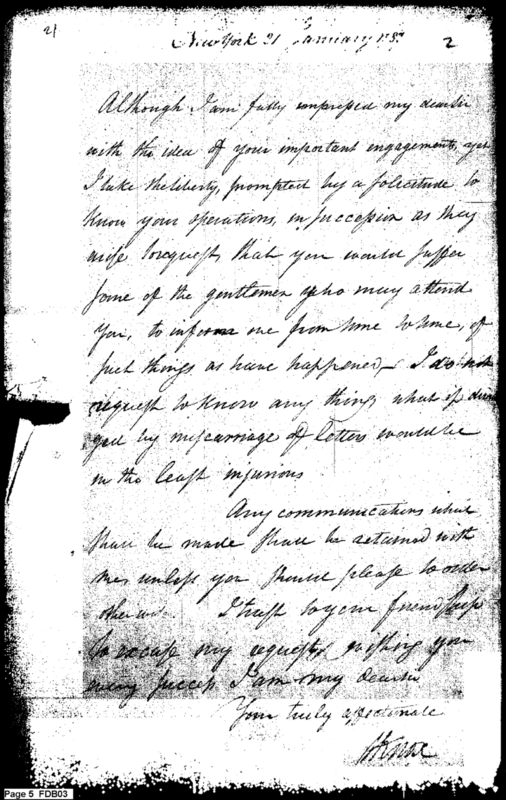 21
New York 21 January 178
2
Although I am fully impressed my dear sir
with the idea of your important engagements, yet
I take the liberty, prompted by a solicitude to
know your operations, in succession as they
arise to request, that you would suffer
some of the gentlemen who may attend
you, to inform me from time to time, of
such things as have happened – I do not
request to know any thing what if divul
ged by miscarriage of letters would be
in the least injurious
Any communications which
shall be made shall be retained with
me unless you should please to order
otherwise I trust to your friendship
to excuse my request, wishing you
every success I am my dear sir
Your truly affectionate
HKnox
Page 5 FDB03